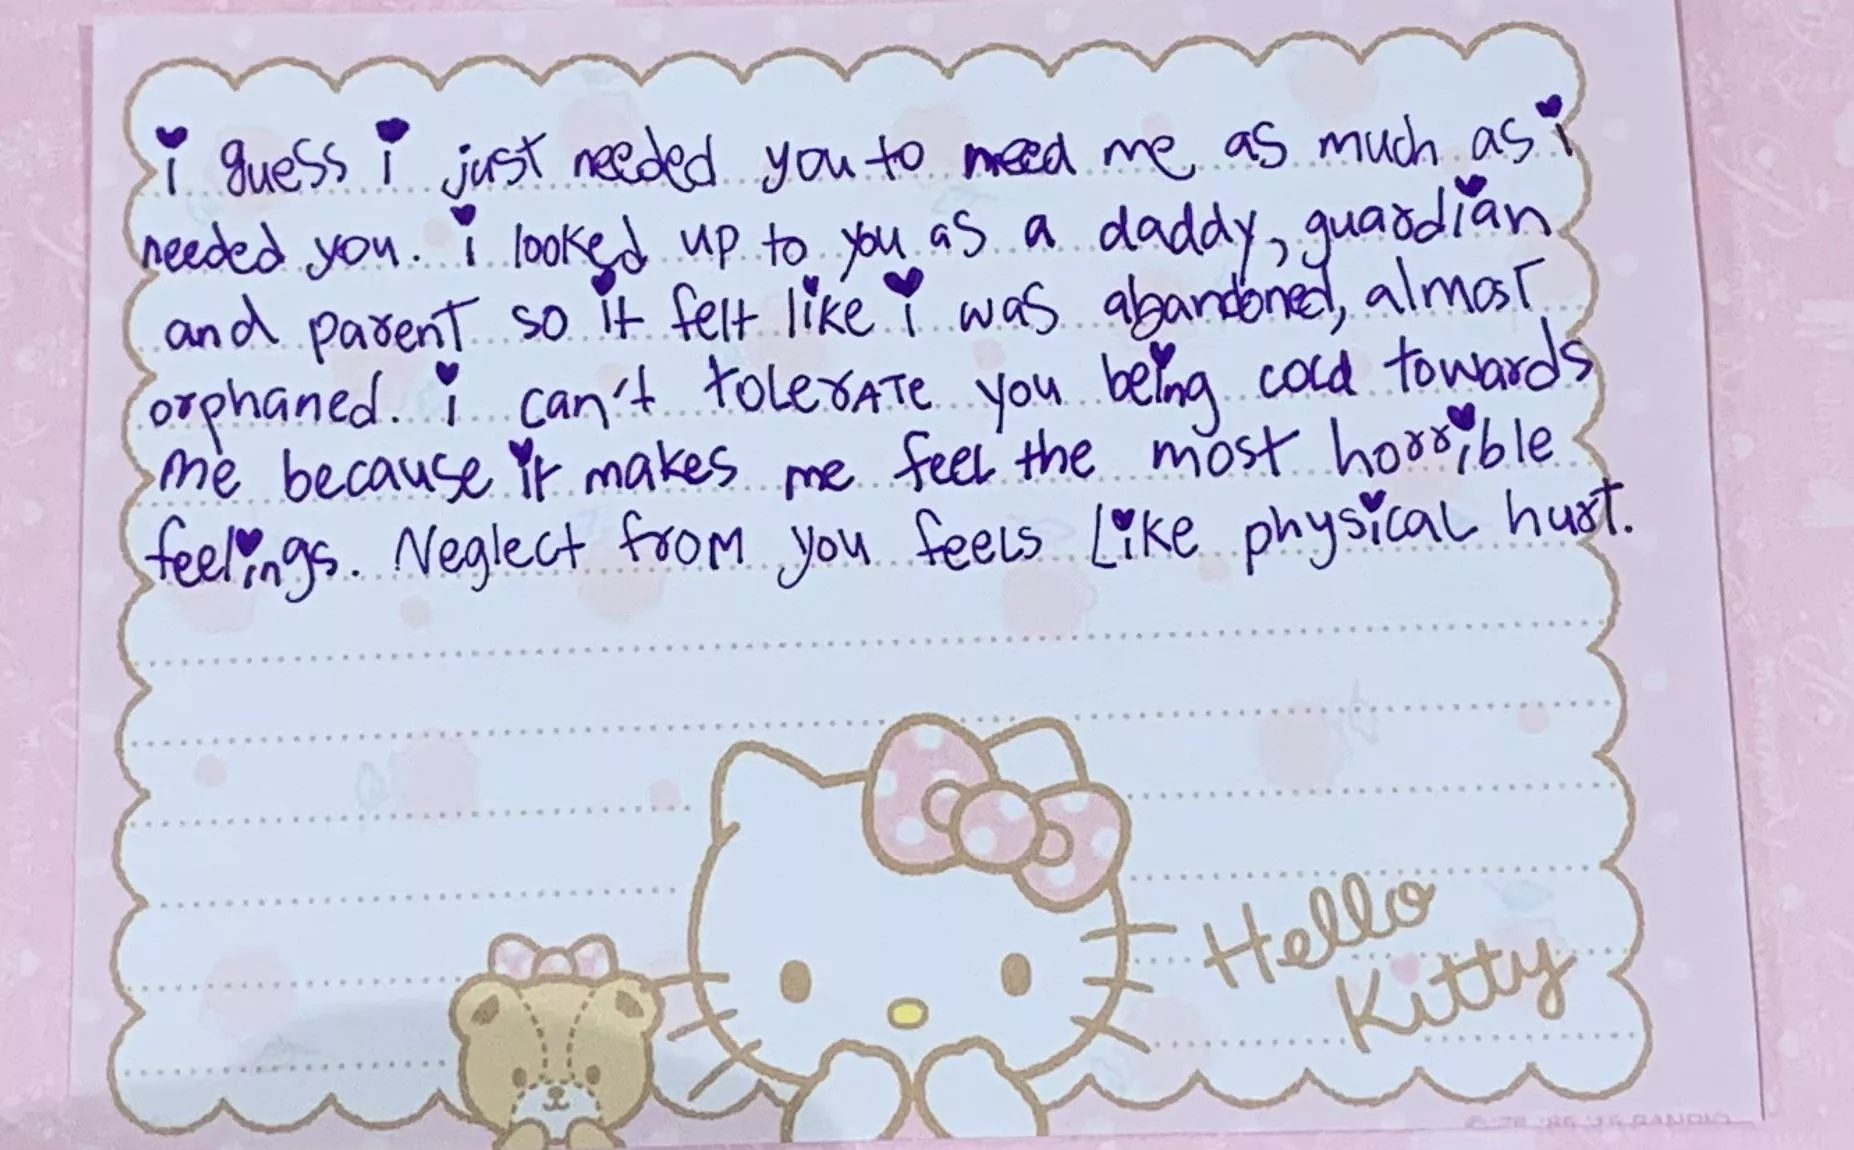 i guess i just needed you to need me as much as i
needed you. i looked up to you as a daddy, guardian
and parent so it felt like i was abandoned, almost
orphaned. i can't tolerate you being cold towards
me because it makes me feel the most horrible
feelings. Neglect from you feels like physical hurt.
Hello
Kitty